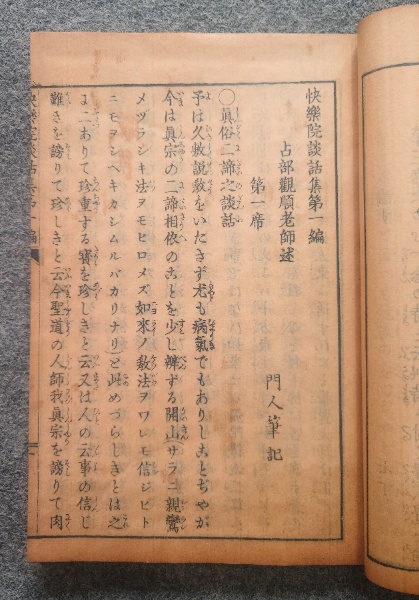 快樂院談話集第一編
占部觀順老師述
門人筆記
第一席
〇眞俗二諦之談話
予は久敷説敎をいたさず尤も病氣でもありしことぢやが
今は眞宗の二諦相依のことを少し辨ずる開山サラニ親鸞
メヅラシキ法ヲモヒロメズ如來ノ敎法ヲワレモ信ジヒト
ニモヲシヘキカシムルバカリナリと此めづらしきとは之
に二ありて珍重する寳を珍しきと云又は人の云事の信じ
難きを謗りて珍しきと云今聖道の人師我眞宗を謗りて肉
快樂院談話集第一編